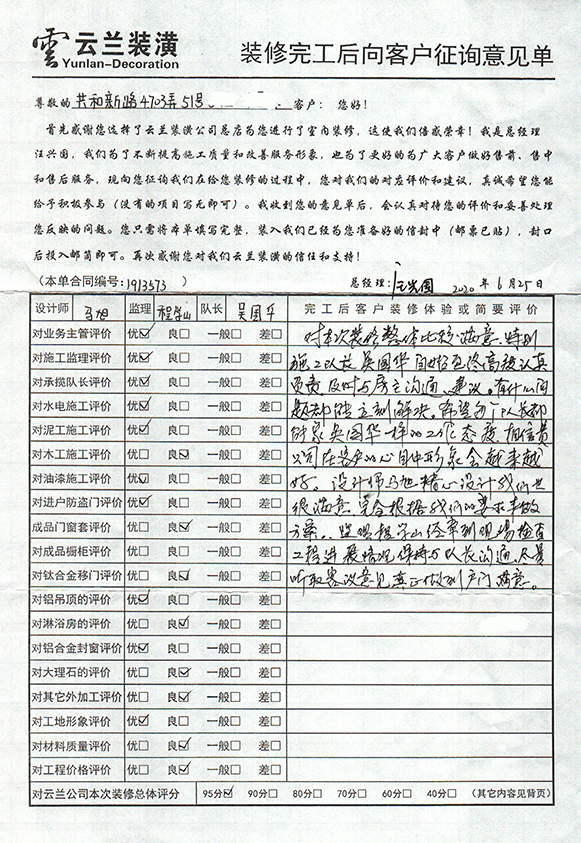 雲 云兰装潢
Yunlan-Decoration
装修完工后向客户征询意见单
尊敬的 共和新路4703弄51号 客户： 您好！
首先感谢您选择了云兰装潢公司总店为您进行了室内装修，这使我们倍感荣幸！我是总经理
汪兴国，我们为了不断提高施工质量和改善服务形象，也为了更好的为广大客户做好售前、售中
和售后服务，现向您征询我们在给您装修的过程中，您对我们的对应评价和建议，真诚希望您能
给予积极参与（没有的项目写无即可）。我收到您的意见单后，会认真对待您的评价和妥善处理
您反映的问题。您只需将本单填写完整，装入我们已经为您准备好的信封中（邮票已贴），封口
后投入邮筒即可。再次感谢您对我们云兰装潢的信任和支持！
（本单合同编号：1913573 ） 总经理：汪兴国 2020 年 6月25日
设计师 马旭 监理 程学山 队长 吴国华 完工后客户装修体验或简要评价
对业务主管评价 优☑ 良□ 一般□ 差□ 对本次装修整体比较满意，特别
对施工监理评价 优☑ 良□ 一般□ 差□ 施工队长吴国华自始至终高度认真
对承揽队长评价 优☑ 良□ 一般□ 差□ 负责，及时与房主沟通、建议。有什么问
对水电施工评价 优☑ 良□ 一般□ 差□ 题都能立刻解决。希望每个队长都
对泥工施工评价 优☑ 良□ 一般□ 差□ 像吴国华一样的工作态度，相信贵
对木工施工评价 优□ 良☑ 一般□ 差□ 公司在客户的心目中形象会越来越
对油漆施工评价 优☑ 良□ 一般□ 差□ 好。设计师马旭精心设计我们也
对进户防盗门评价 优☑ 良□ 一般□ 差□ 很满意，完全根据我们的要求来做
成品门窗套评价 优□ 良☑ 一般□ 差□ 方案。监理程学山经常到现场检查
对成品橱柜评价 优□ 良□ 一般□ 差□ 工程进展情况，保持与队长沟通，尽量
对钛合金移门评价 优□ 良☑ 一般□ 差□ 听取客议意见真正做到户户满意。
对铝吊顶的评价 优☑ 良□ 一般□ 差□
对淋浴房的评价 优□ 良☑ 一般□ 差□
对铝合金封窗评价 优☑ 良□ 一般□ 差□
对大理石的评价 优□ 良☑ 一般□ 差□
对其它外加工评价 优□ 良☑ 一般□ 差□
对工地形象评价 优☑ 良□ 一般□ 差□
对材料质量评价 优□ 良☑ 一般□ 差□
对工程价格评价 优□ 良☑ 一般□ 差□
对云兰公司本次装修总体评分 95分☑ 90分□ 80分□ 70分□ 60分□ 40分□ （其它内容见背页）